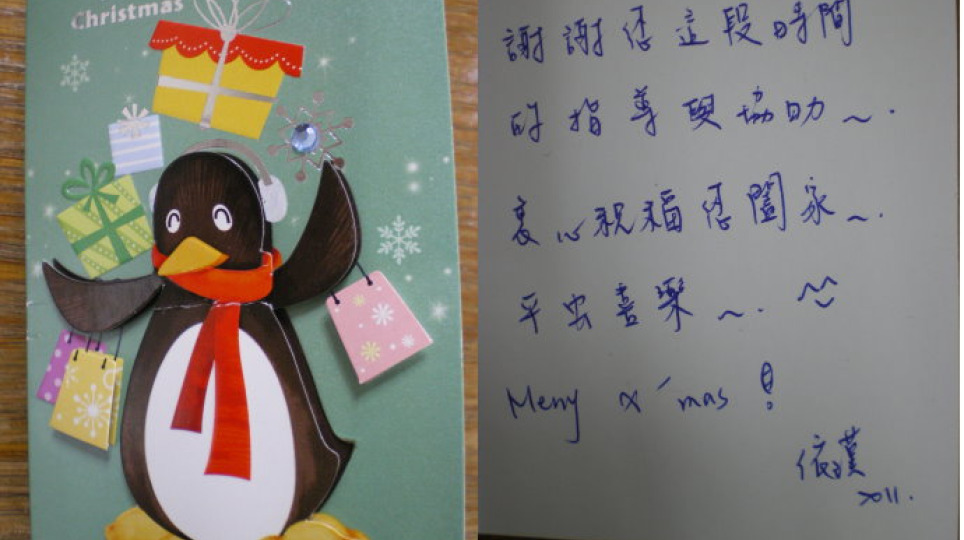 Christmas
謝謝您這段時間
的指導與協助~.
衷心祝福您闔家~.
平安喜樂~. ^^
Merry X'mas!
依璞
2011.